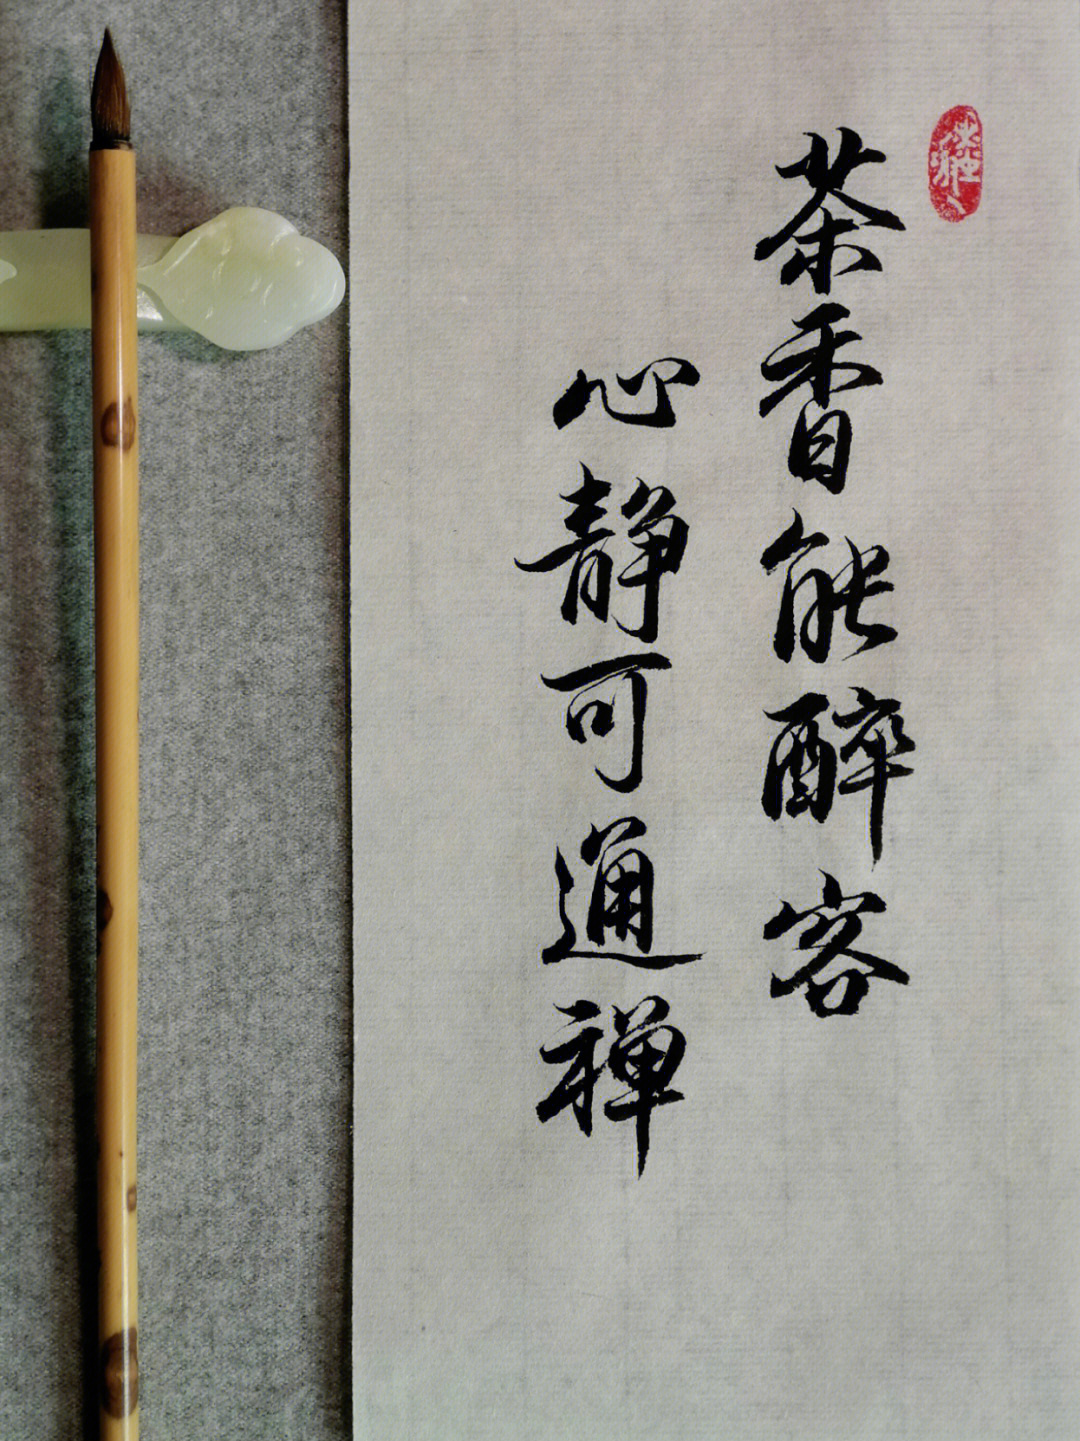 茶香能醉客
心静可通禅